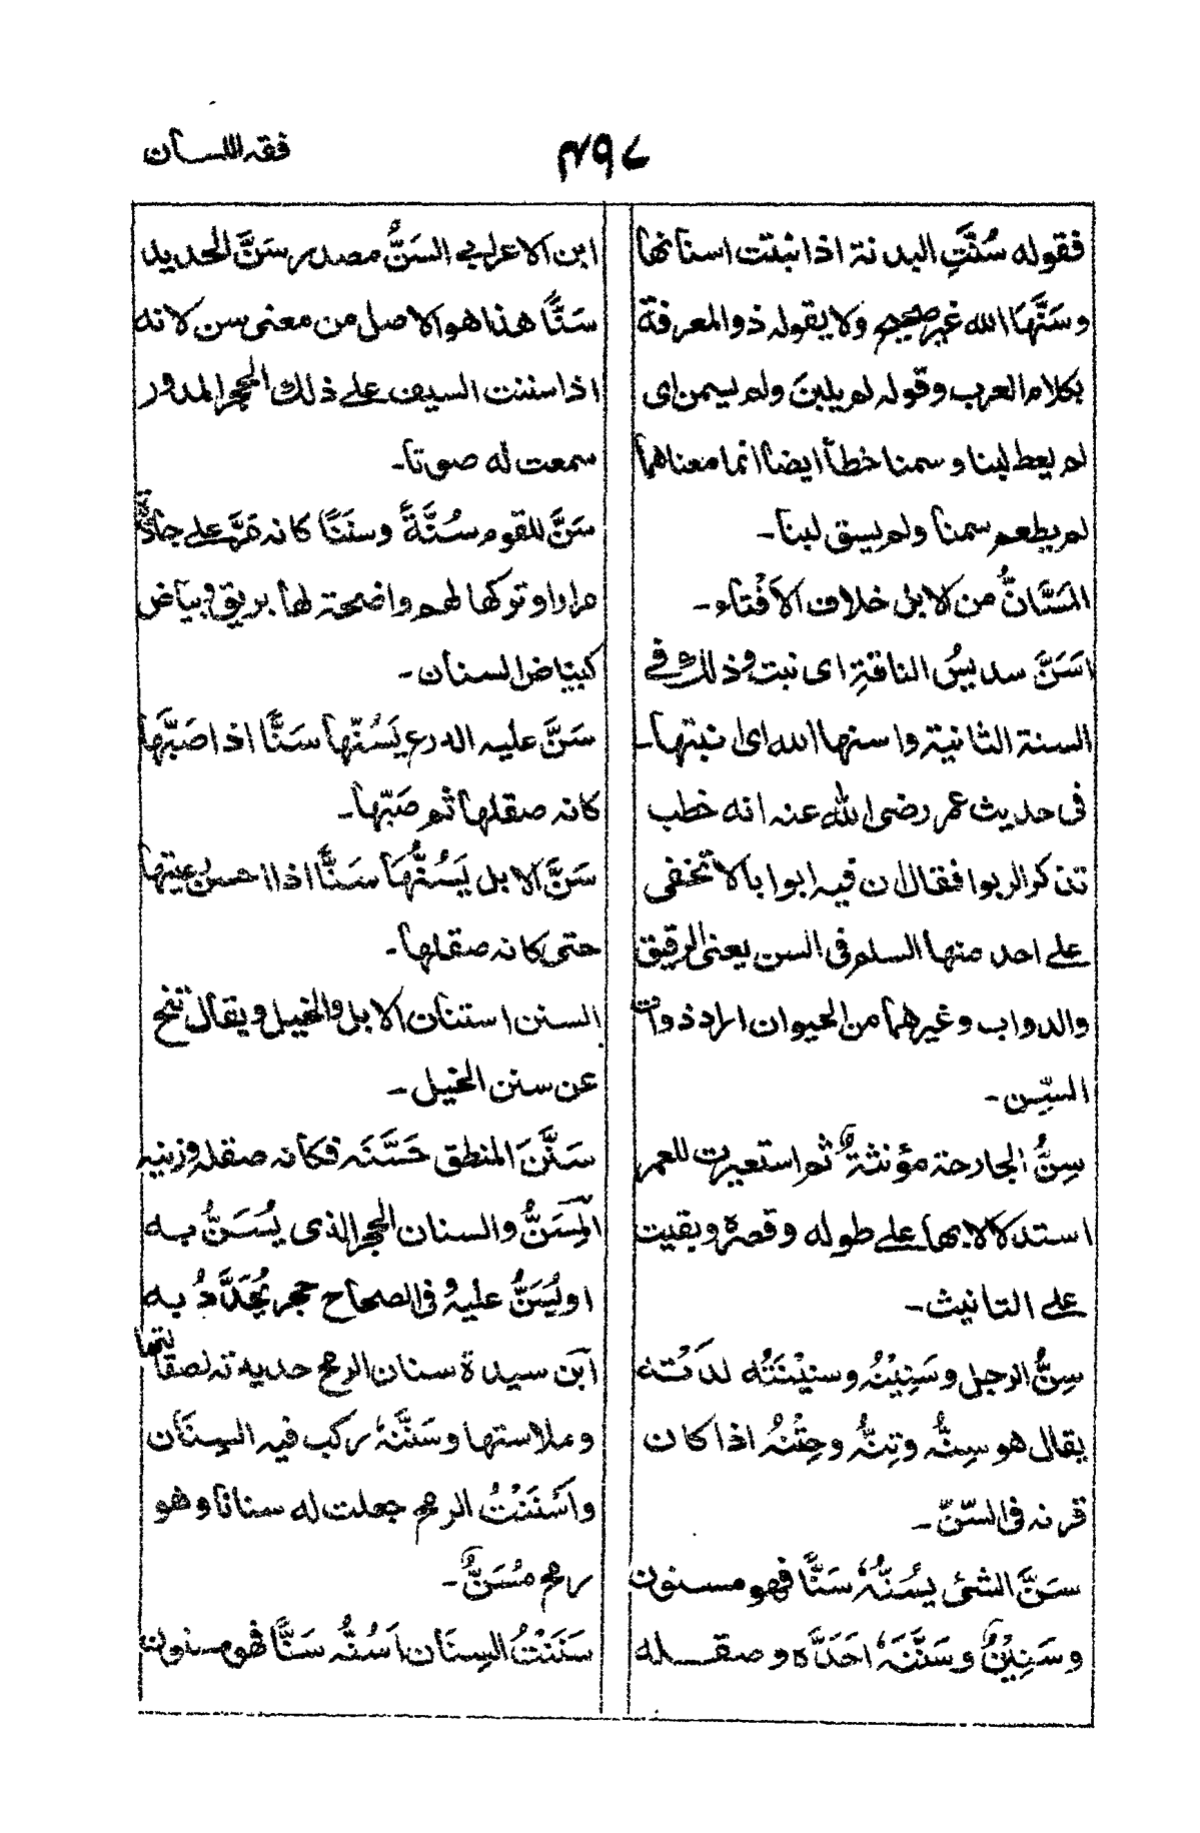 فقه اللسان
۴۹۷
فقوله سُنَّتِ البدنة اذا نبتت اسنانها
وسَنَّهَا الله غير صحيح ولا يقوله ذو المعرفة
بكلام العرب وقوله لم يلبن ولم يسمن اى
لم يعط لبنا وسمنا خطأ ايضا انما معناهما
لم يطعم سمنا ولم يسق لبنا۔
المَسَانُّ من الابل خلاف الأَفْتاء۔
اَسَنَّ سديسُ الناقةِ اى نبت وذلك فى
السنة الثانية واسنها الله اى انبتها۔
فى حديث عمر رضى الله عنه انه خطب
تذكر الربوا فقال ان فيه ابوابا لا تخفى
على احد منها السلم فى السن يعنى الرقيق
والدواب وغيرهما من الحيوان اراد ذوات
السِّن۔
سِنُّ الجارحة مؤنثةٌ ثم استعيرت للعمر
استدلالا بها على طوله وقصره وبقيت
على التانيث۔
سِنُّ الرجل وسَنِيْنُه وسنِيْنَتُه لدَتُه
يقال هو سِنُّه وتِنُّه وحِتْنُه اذا كان
قرنه فى السِّنّ۔
سَنَّ الشئ يسُنُّهٗ سَنًّا فهو مسنون
وسَنِيْنٌ وسَنَّنَهٗ احَدَّه وصقله
ابن الاعرابى السَنُّ مصدر سَنَّ الحديد
سَنًّا هذا هو الاصل من معنى سن لانه
اذا سننت السيف على ذلك الحجر المدور
سمعت له صوتا۔
سَنَّ للقوم سُنَّةً وسنَنًا كانه مَرَّ على جادَّةٍ
مرارا وتركها لهم واضحة لها بريق وبياض
كبياض السنان۔
سَنَّ عليه الدرع يَسُنّها سَنًّا اذا صَبَّها
كانه صقلها ثم صَبّها۔
سَنَّ الابل يَسُنُّهَا سَنًّا اذا احسن رعيتها
حتى كانه صقلها۔
السنن استنان الابل والخيل ويقال تنح
عن سنن الخيل۔
سَنَّنَ المنطق حَسَّنَه فكانه صقله وزينه
المِسَنُّ والسنان الحجر الذى يُسَنُّ به
او يُسَنُّ عليه وفى الصحاح حجر يُحَدَّدُ به
ابن سيدة سنان الرمح حديدته لصقالتها
وملاستها وسَنَّنَهٗ ركب فيه السِنَان
واَسْنَنْتُ الرمح جعلت له سنانا وهو
رمح مُسَنٌّ۔
سَنَنْتُ السِنَان اَسُنُّه سَنًّا فهو مسنون